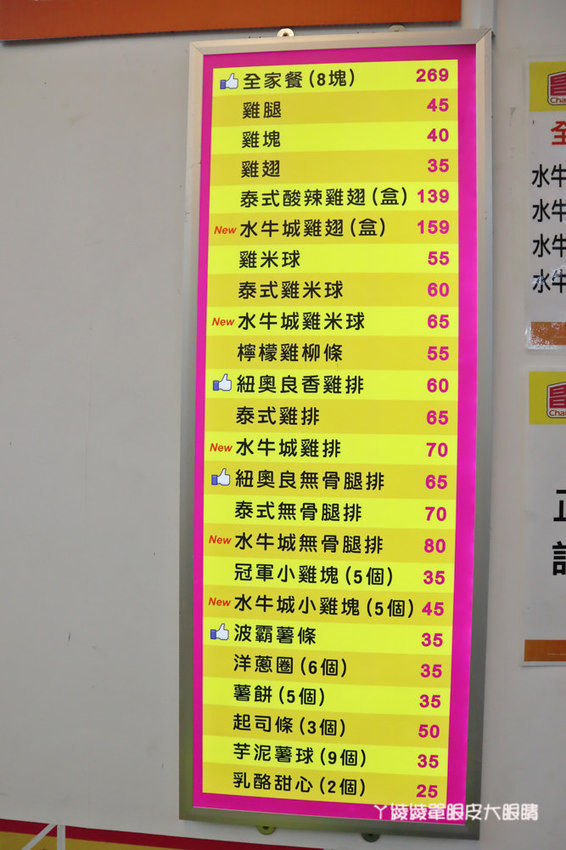 全家餐(8塊) 269
雞腿 45
雞塊 40
雞翅 35
泰式酸辣雞翅(盒) 139
New 水牛城雞翅(盒) 159
雞米球 55
泰式雞米球 60
New 水牛城雞米球 65
檸檬雞柳條 55
紐奧良香雞排 60
泰式雞排 65
New 水牛城雞排 70
紐奧良無骨腿排 65
泰式無骨腿排 70
New 水牛城無骨腿排 80
冠軍小雞塊(5個) 35
New 水牛城小雞塊(5個) 45
波霸薯條 35
洋蔥圈(6個) 35
薯餅(5個) 35
起司條(3個) 50
芋泥薯球(9個) 35
乳酪甜心(2個) 25
Cha
水牛
水牛
水牛
水牛
Cha
ㄚ陵陵單眼皮大眼睛